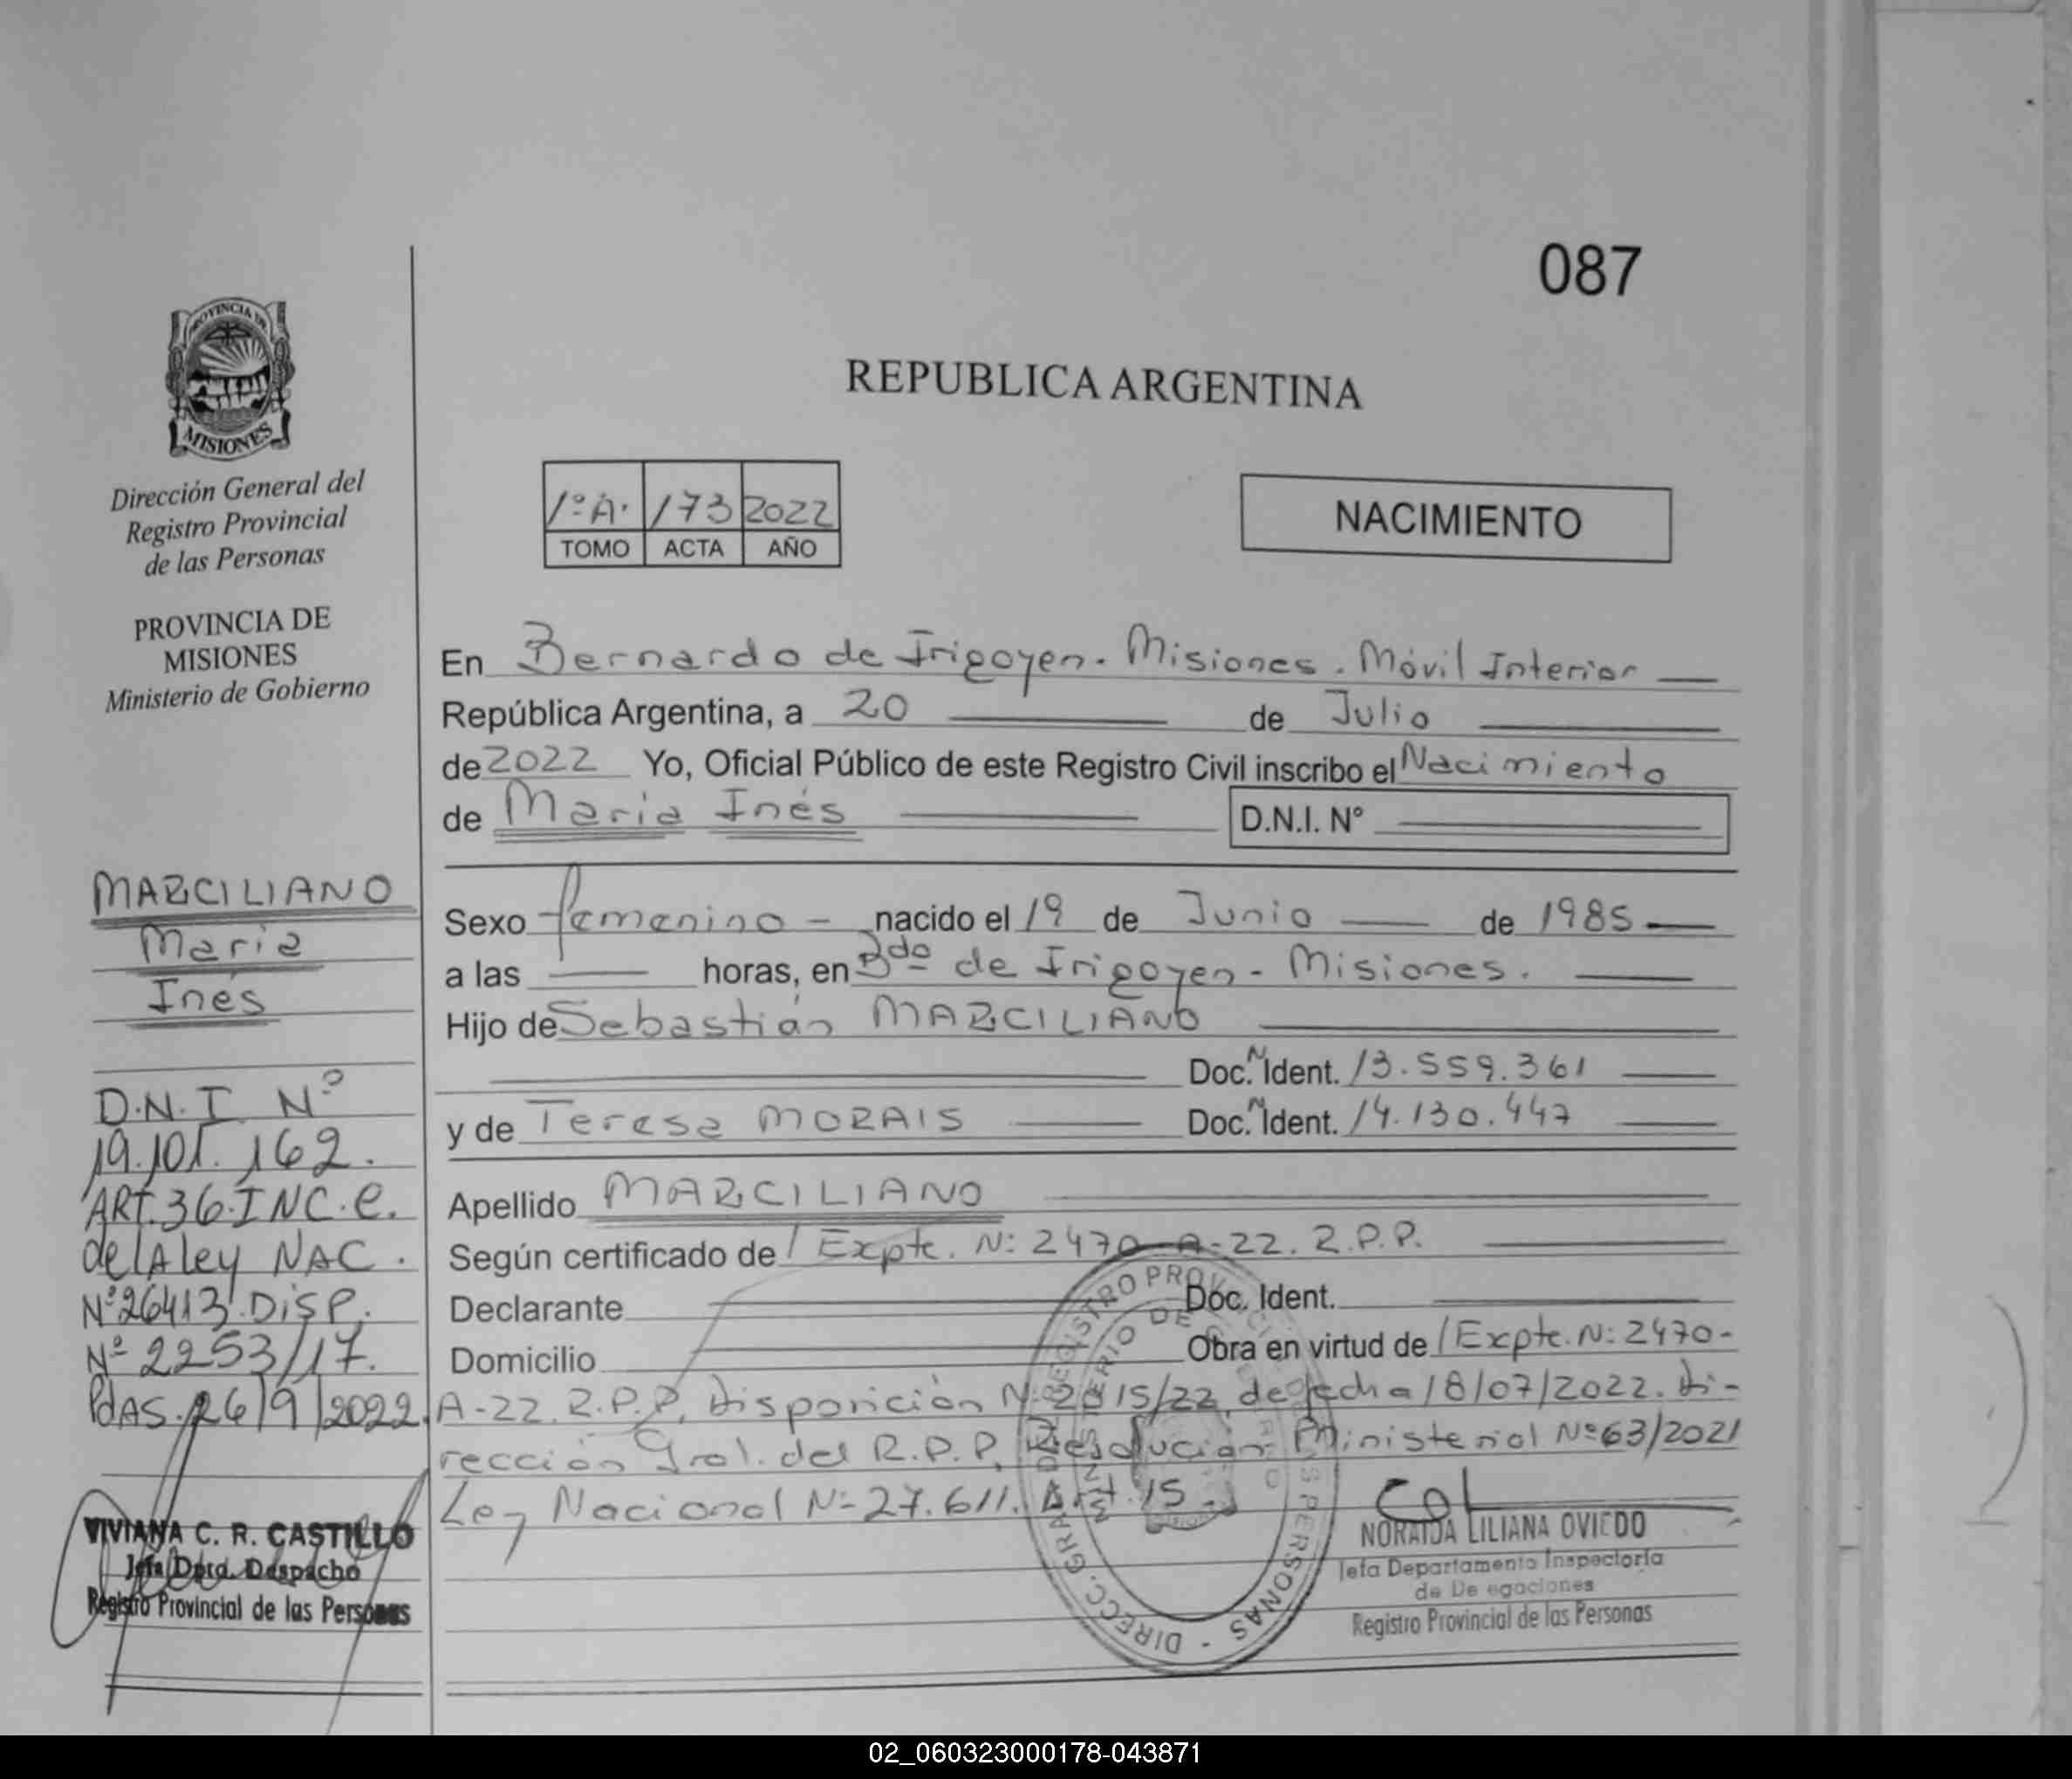 087
PROVINCIA DE
MISIONES
Dirección General del
Registro Provincial
de las Personas
PROVINCIA DE
MISIONES
Ministerio de Gobierno
MARCILIANO
Maria
Inés
D.N.I Nº
19.101.162.
ART.36.INC.e.
de lA ley NAC.
Nº26413.DiSP.
Nº 2253/17.
PdAS.26/9/2022.
VIVIANA C. R. CASTILLO
Jefa Dpto. Despacho
Registro Provincial de las Personas
REPUBLICA ARGENTINA
1º A. 173 2022
TOMO ACTA AÑO
NACIMIENTO
En Bernardo de Irigoyen. Misiones. Móvil Interior
República Argentina, a 20 de Julio
de 2022 Yo, Oficial Público de este Registro Civil inscribo el Nacimiento
de Maria Inés D.N.I. N°
Sexo femenino - nacido el 19 de Junio de 1985
a las horas, en Bdo de Irigoyen - Misiones.
Hijo de Sebastián MARCILIANO
Doc. N Ident. 13.559.361
y de Teresa MORAIS Doc. N Ident. 14.130.447
Apellido MARCILIANO
Según certificado de / Expte. N: 2470-A-22. R.P.P.
Declarante Doc. Ident.
Domicilio Obra en virtud de / Expte. N: 2470-
A-22. R.P.P. Disposición N: 2015/22, de fecha 18/07/2022. Di-
rección Gral. del R.P.P. Resolución Ministerial Nº 63/2021
Ley Nacional Nº 27.611. Art. 15.
DIRECC. GRAL. DE REGISTRO PROVINCIAL PERSONAS
MINISTERIO DE
NORAIDA LILIANA OVIEDO
Jefa Departamento Inspectoría
de Delegaciones
Registro Provincial de las Personas
02_060323000178-043871